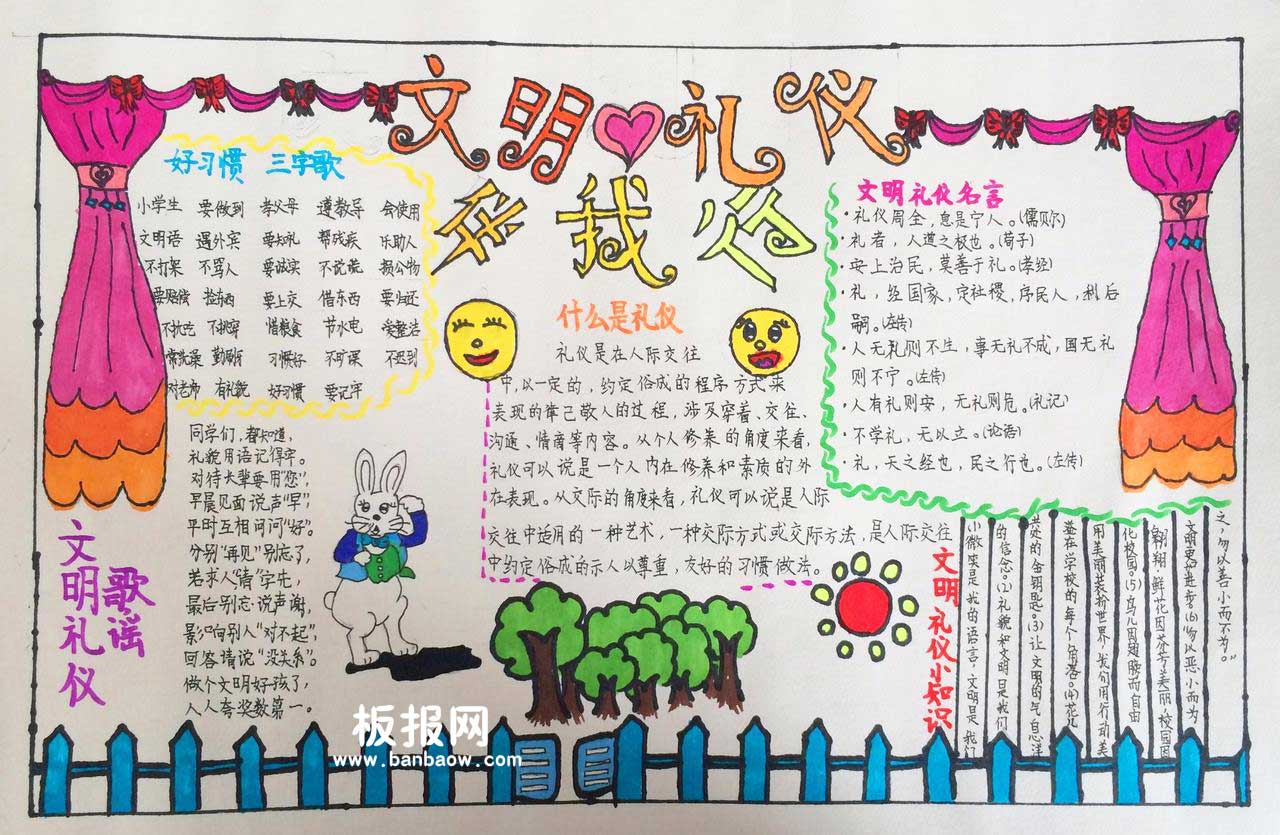 文明礼仪
在我心
好习惯 三字歌
小学生 要做到 孝父母 遵教导 会使用
文明语 遇外宾 要知礼 帮残疾 乐助人
不打架 不骂人 要诚实 不说谎 损公物
要赔偿 捡东西 要上交 借东西 要归还
不挑吃 不挑穿 惜粮食 节水电 爱整洁
常洗澡 勤刷牙 习惯好 不旷课 不迟到
对老师 有礼貌 好习惯 要记牢
文明礼仪
歌谣
同学们,都知道,
礼貌用语记得牢。
对待长辈要用"您",
早晨见面说声"早",
平时互相问问"好"。
分别"再见"别忘了,
若求人"请"字先,
最后别忘说声谢,
影响别人"对不起",
回答请说"没关系"。
做个文明好孩子,
人人夸奖数第一。
什么是礼仪
礼仪是在人际交往
中,以一定的,约定俗成的程序方式来
表现的律己敬人的过程,涉及穿着、交往、
沟通、情商等内容。从个人修养的角度来看,
礼仪可以说是一个人内在修养和素质的外
在表现。从交际的角度来看,礼仪可以说是人际
交往中适用的一种艺术,一种交际方式或交际方法,是人际交往
中约定俗成的示人以尊重,友好的习惯做法。
文明礼仪名言
·礼仪周全,息是宁人。(儒贝尔)
·礼者,人道之极也。(荀子)
·安上治民,莫善于礼。(孝经)
·礼,经国家,定社稷,序民人,利后
嗣。(左传)
·人无礼则不生,事无礼不成,国无礼
则不宁。(左传)
·人有礼则安,无礼则危。(礼记)
·不学礼,无以立。(论语)
·礼,天之经也,民之行也。(左传)
文明礼仪小知识
小微笑是我的语言,文明是我们
的信念。(2)礼貌如文明是我们
共处的金钥匙。(3)让文明的气息洋
溢在学校的每个角落。(4)花儿
用美丽装扮世界,我们用行动美
化校园。(5)鸟儿因翅膀而自由
翱翔,鲜花因芬芳美丽,校园因
文明更加进步。(6)"勿以恶小而为
之,勿以善小而不为。"
板报网
www.banbaow.com